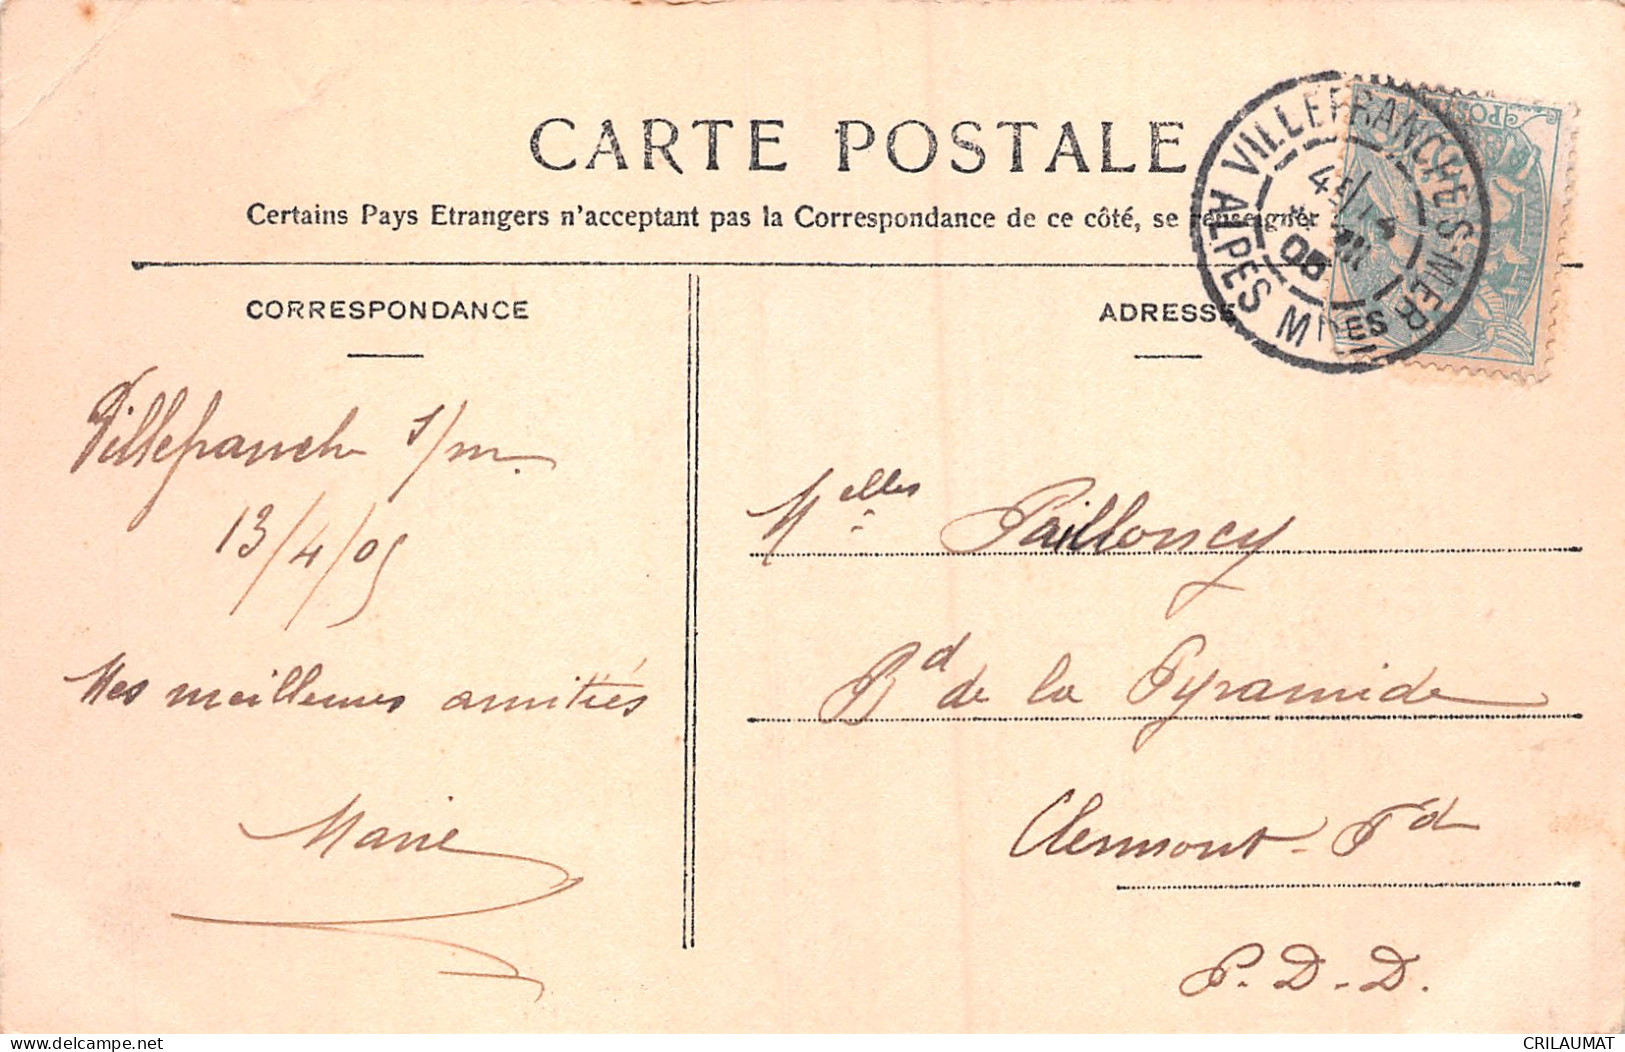 CARTE POSTALE
Certains Pays Etrangers n'acceptant pas la Correspondance de ce côté, se renseigner
CORRESPONDANCE
ADRESSE
VILLEFRANCHE S MER
ALPES MMES
05
POSTES
Villefranche s/m.
13/4/05
Mes meilleures amitiés
Marie
Melles Pailloncy
Bd de la Pyramide
Clermont-Fd
P.D.D.
delcampe.net
CRILAUMAT